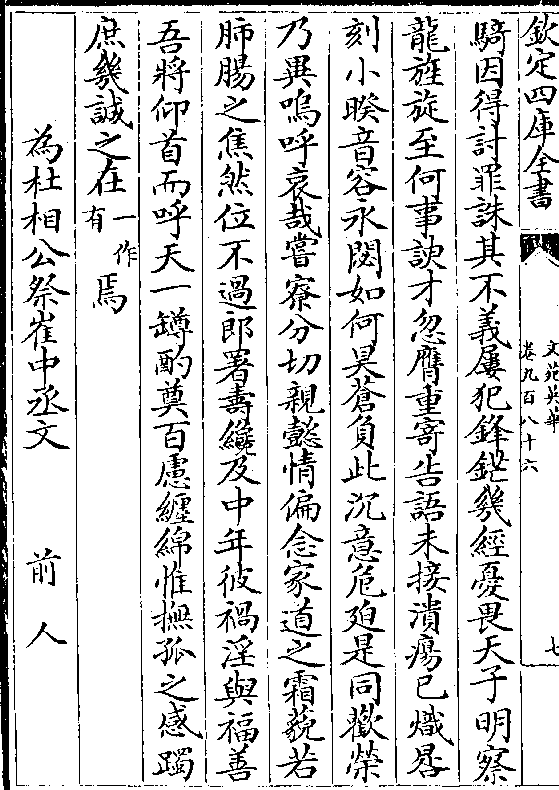 欽定四庫全書
文苑英華
卷九百八十六
七
騎因得討罪誅其不義屢犯鋒鋩幾經憂畏天子明察
龍旌旋至何事諛才忽膺重寄告語未接潰瘍已熾晷
刻小暌音容永閟如何昊蒼負此沉意危廹是同歡榮
乃異嗚呼哀哉嘗寮分切親懿情偏念家道之霜藐若
肺腸之焦然位不過郎署壽纔及中年彼禍淫與福善
吾將仰首而呼天一罇酌奠百慮纏綿惟撫孤之感躅
庶幾誠之在一作有焉
為杜相公祭崔中丞文　前人